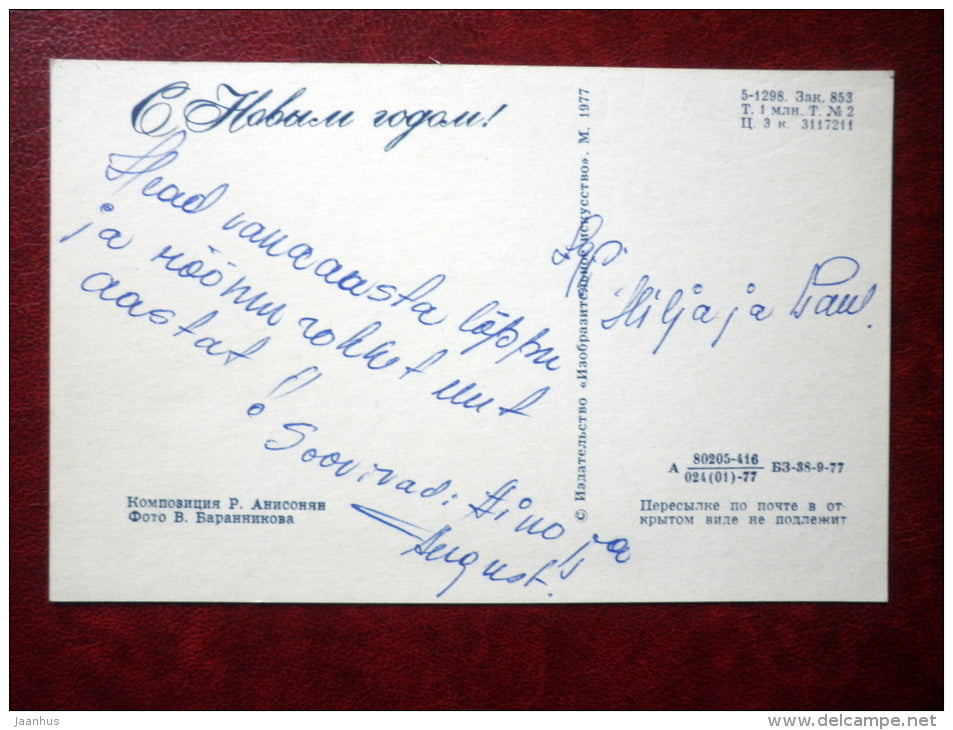 С Новым годом!
Head vanaaasta lõppu
ja rõõmurohket uut
aastat!
Soovivad: Aino ja
August.
Композиция Р. Анисонян
Фото В. Баранникова
© Издательство «Изобразительное искусство». М. 1977
5-1298. Зак. 853
Т. 1 млн. Т. № 2
Ц. 3 к. 3117211
Hilja ja Paul.
А 80205-416 БЗ-38-9-77
024(01)-77
Пересылке по почте в от-
крытом виде не подлежит
Jaanhus
www.delcampe.net